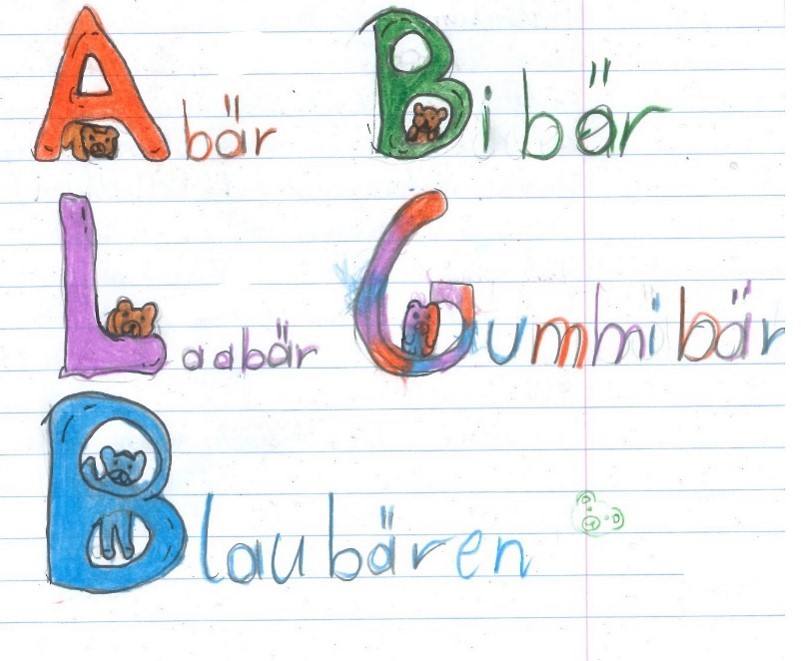 Abär Bibär
Laabär Gummibär
Blaubären